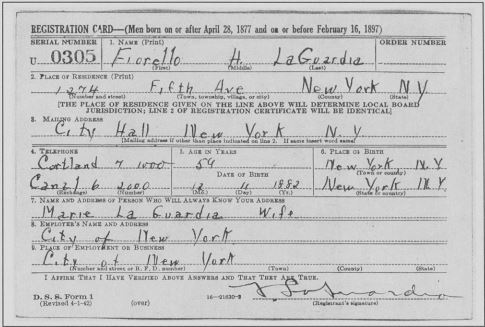 REGISTRATION CARD—(Men born on or after April 28, 1877 and on or before February 16, 1897)
SERIAL NUMBER 1. NAME (Print) ORDER NUMBER
U 0305 Fiorello H. LaGuardia
(First) (Middle) (Last)
2. PLACE OF RESIDENCE (Print)
1274 Fifth Ave New York N Y
(Number and street) (Town, township, village, or city) (County) (State)
[THE PLACE OF RESIDENCE GIVEN ON THE LINE ABOVE WILL DETERMINE LOCAL BOARD
JURISDICTION; LINE 2 OF REGISTRATION CERTIFICATE WILL BE IDENTICAL]
3. MAILING ADDRESS
City Hall New York N. Y.
[Mailing address if other than place indicated on line 2. If same insert word same]
4. TELEPHONE 5. AGE IN YEARS 6. PLACE OF BIRTH
Cortland 7 1000 59 New York N. Y.
DATE OF BIRTH (Town or county)
Canal 6 2000 12 11 1882 New York N. Y.
(Exchange) (Number) (Mo.) (Day) (Yr.) (State or country)
7. NAME AND ADDRESS OF PERSON WHO WILL ALWAYS KNOW YOUR ADDRESS
Marie La Guardia Wife
8. EMPLOYER'S NAME AND ADDRESS
City of New York
9. PLACE OF EMPLOYMENT OR BUSINESS
City of New York
(Number and street or R. F. D. number) (Town) (County) (State)
I AFFIRM THAT I HAVE VERIFIED ABOVE ANSWERS AND THAT THEY ARE TRUE.
D. S. S. Form 1
(Revised 4-1-42) (over) 16—21630-2 (Registrant's signature)